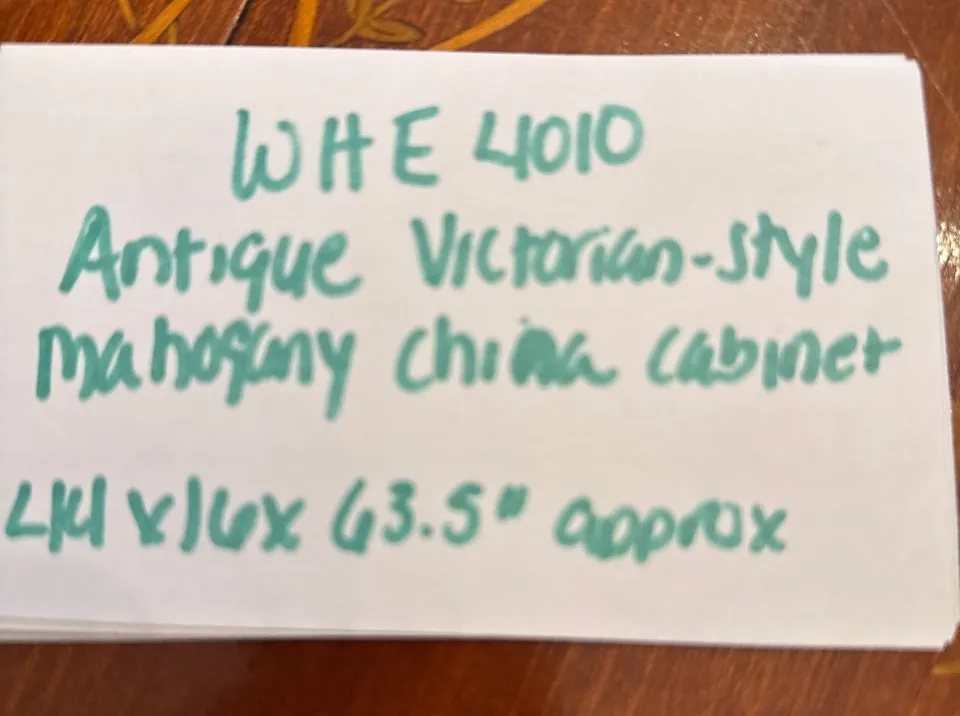 WHE 4010
Antique Victorian-style
mahogany china cabinet
44 x 16 x 63.5" approx